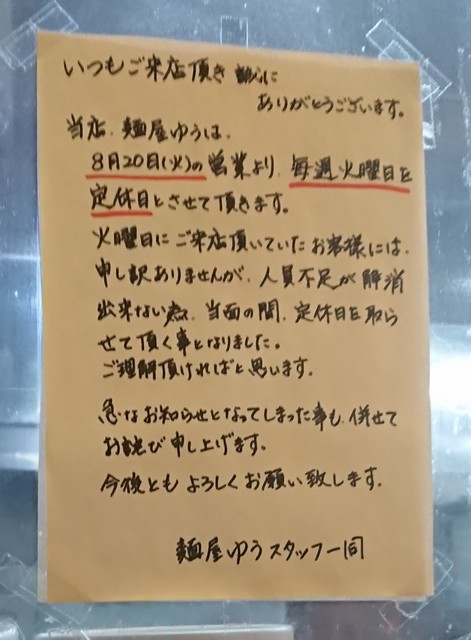 いつもご来店頂き 誠に
ありがとうございます。
当店、麺屋ゆうは、
8月20日(火)の営業より、毎週火曜日を
定休日とさせて頂きます。
火曜日にご来店頂いていたお客様には、
申し訳ありませんが、人員不足が解消
出来ない為、当面の間、定休日を取ら
せて頂く事となりました。
ご理解頂ければと思います。
急なお知らせとなってしまった事も、併せて
お詫び申し上げます。
今後とも よろしくお願い致します。
麺屋ゆうスタッフ一同